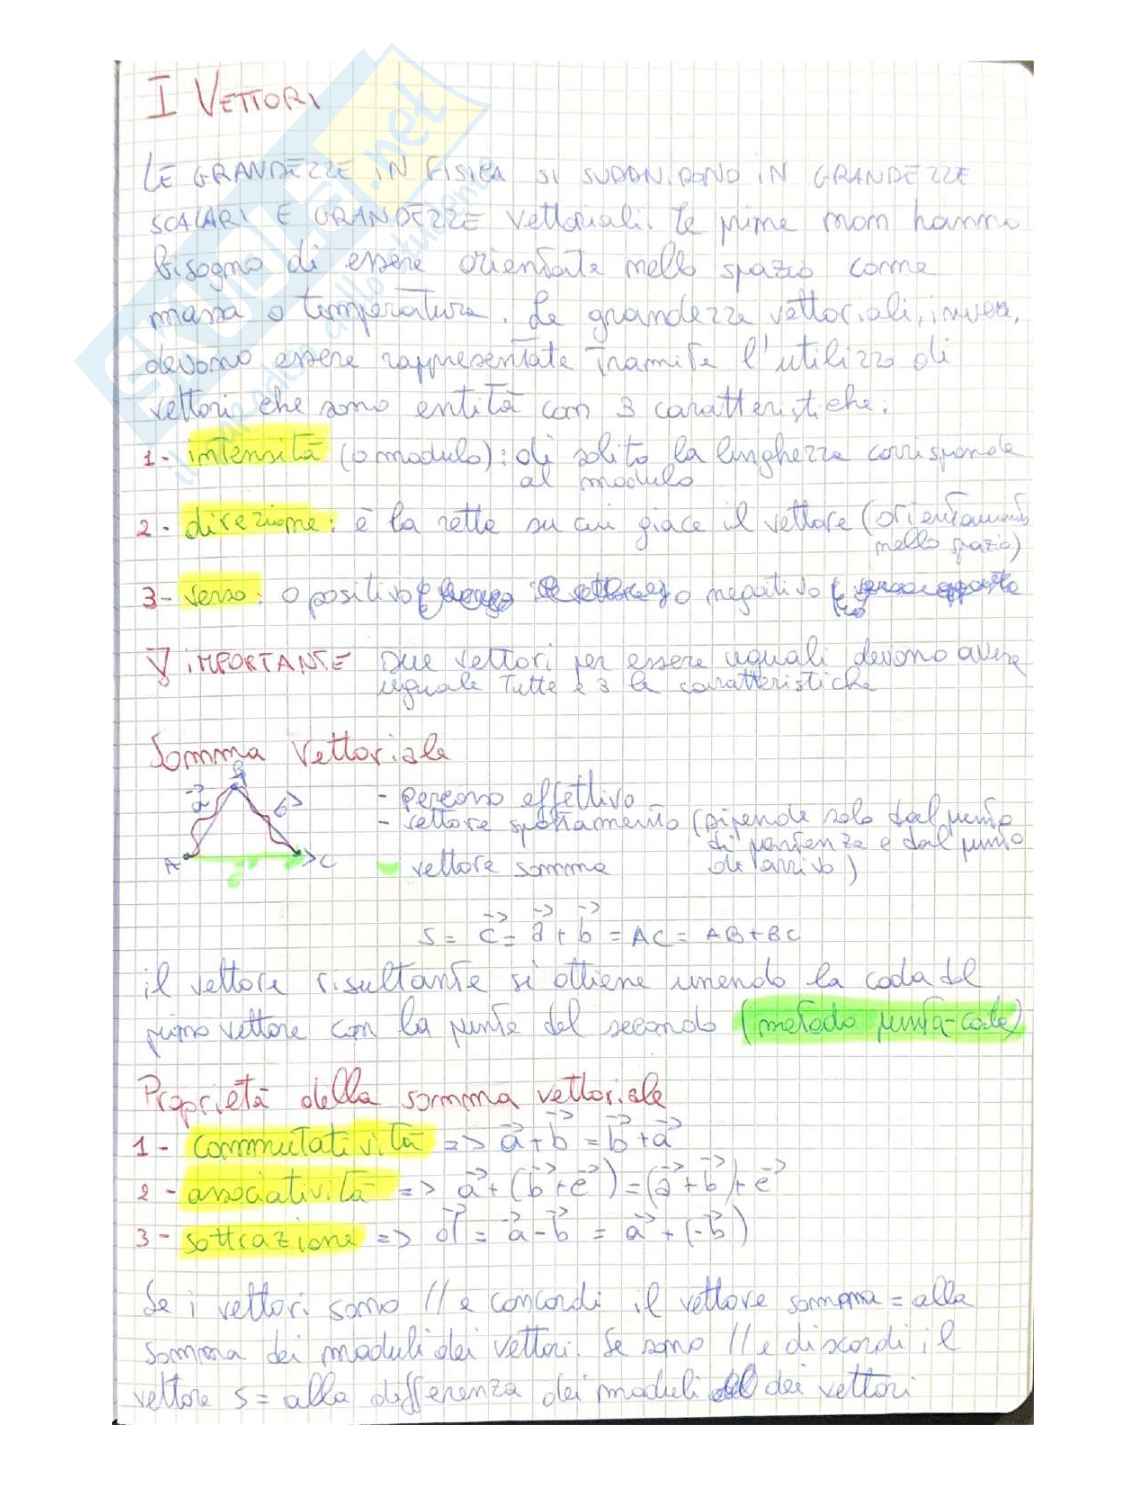 I VETTORI
LE GRANDEZZE IN FISICA SI SUDDIVIDONO IN GRANDEZZE
SCALARI E GRANDEZZE vettoriali. Le prime non hanno
bisogno di essere orientate nello spazio come
massa o temperatura. Le grandezze vettoriali, invece,
devono essere rappresentate tramite l'utilizzo di
vettori che sono entità con 3 caratteristiche:
1- intensità (o modulo): di solito la lunghezza corrisponde
al modulo
2- direzione: è la retta su cui giace il vettore (orientamento
nello spazio)
3- verso: o positivo o negativo
IMPORTANTE Due vettori per essere uguali devono avere
uguale tutte e 3 le caratteristiche
Somma Vettoriale
B
a b
- percorso effettivo
- vettore spostamento (dipende solo dal punto
di partenza e dal punto
A C
vettore somma di arrivo)
S = c⃗ = a⃗ + b⃗ = AC = AB + BC
il vettore risultante si ottiene unendo la coda del
primo vettore con la punta del secondo (metodo punta-coda)
Proprietà della somma vettoriale
1- commutatività => a⃗ + b⃗ = b⃗ + a⃗
2- associatività => a⃗ + (b⃗ + e⃗) = (a⃗ + b⃗) + e⃗
3- sottrazione => d⃗ = a⃗ - b⃗ = a⃗ + (-b⃗)
Se i vettori sono // e concordi il vettore somma = alla
somma dei moduli dei vettori. Se sono // e discordi il
vettore S = alla differenza dei moduli dei vettori